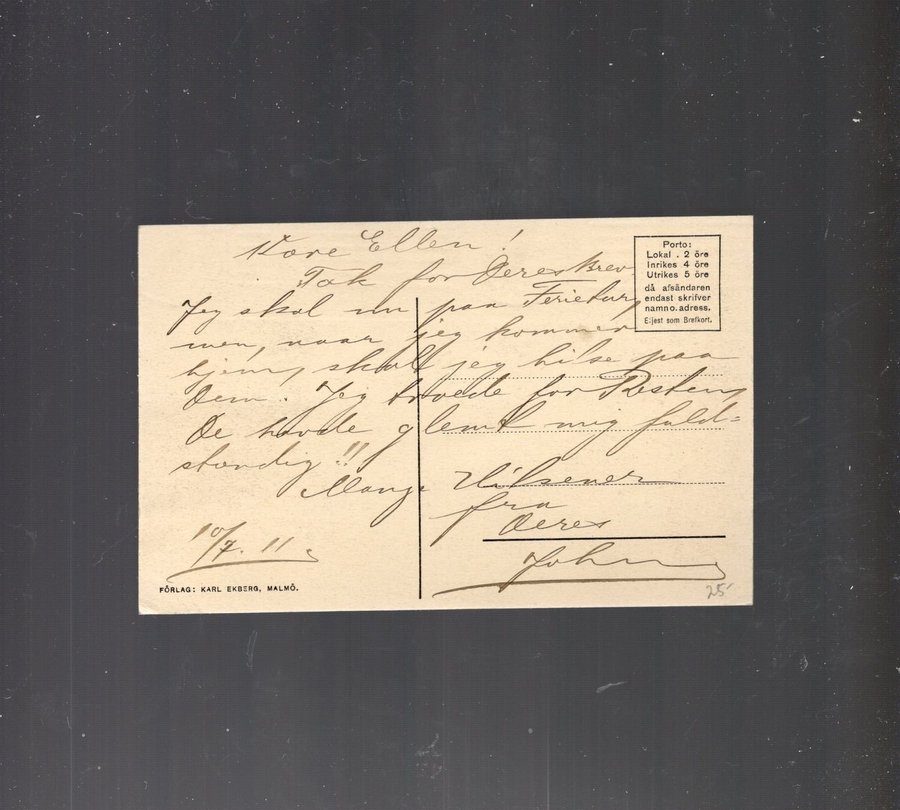 Kære Ellen!
Tak for Deres Brev
Jeg skal nu paa Ferietur,
men, naar jeg kommer
hjem, skal jeg hilse paa
Dem. Jeg troede for Resten,
De havde glemt mig fuld=
stændig!!
Mange Hilsener
fra
Deres
John
10/7. 11.
FÖRLAG: KARL EKBERG, MALMÖ.
Porto:
Lokal . 2 öre
Inrikes 4 öre
Utrikes 5 öre
då afsändaren
endast skrifver
namn o. adress.
Eljest som Brefkort.
25